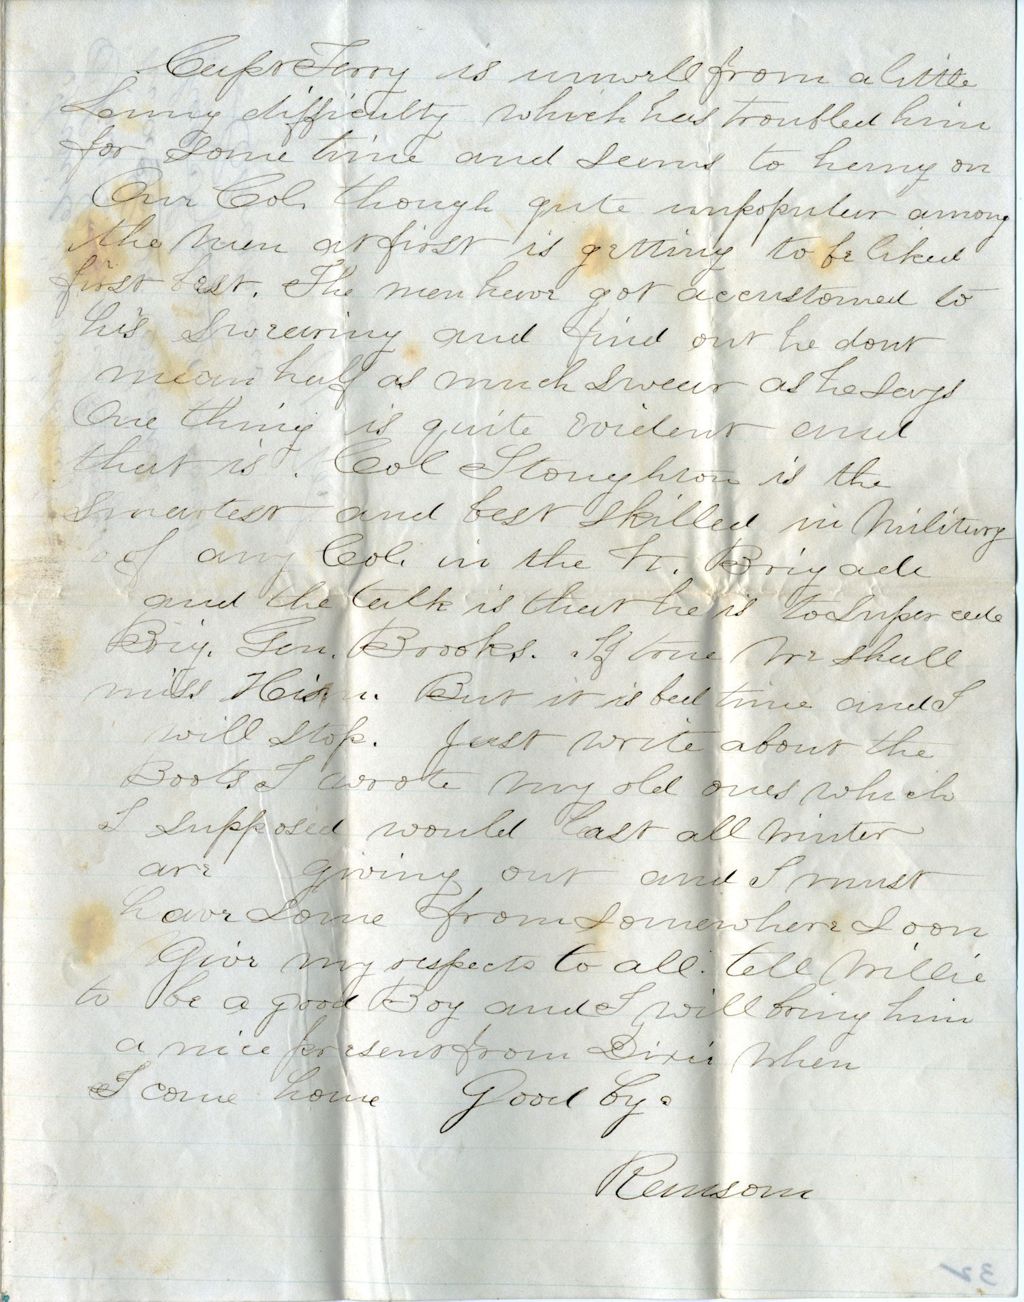 Capt Terry is unwell from a little
Lung difficulty which has troubled him
for some time and seems to hang on
Our Col. though quite unpopular among
the men at first is getting to be liked
first best. The men have got accustomed to
his swearing and find out he dont
mean half as much swear as he says
One thing is quite evident and
that is. Col Stoughton is the
smartest and best skilled in Military
of any Col. in the Vt. Brigade
and the talk is that he is to Supercede
Brig. Gen. Brooks. If true we shall
miss Him. But it is bed time and I
will stop. Just write about the
Boots I wrote my old ones which
I supposed would last all winter
are giving out and I must
have some from somewhere soon
Give my respects to all. tell Willie
to be a good Boy and I will bring him
a nice present from Dixie when
I come home Good by.
Ransom
32